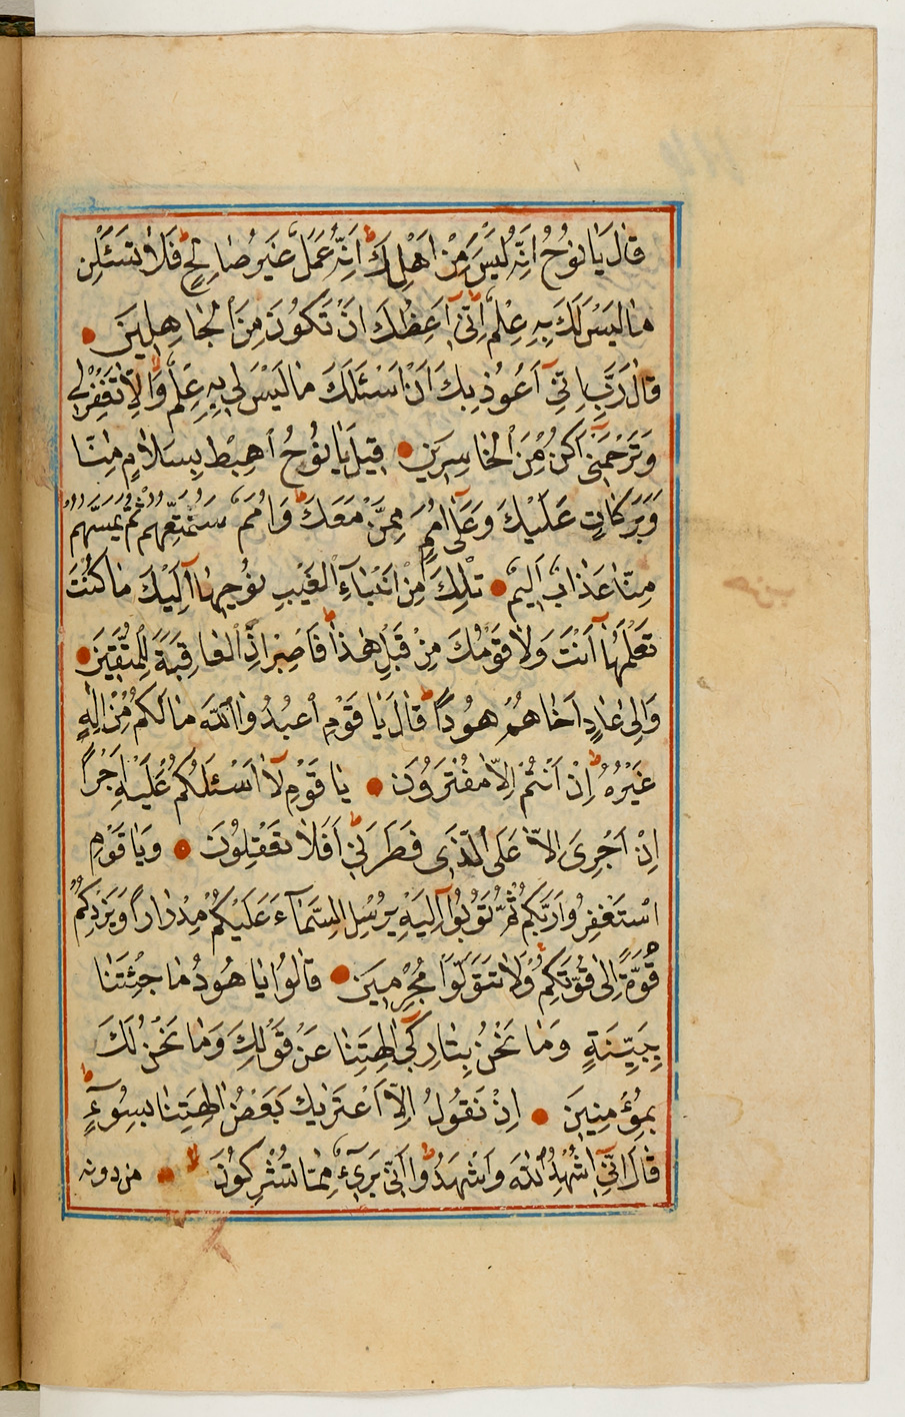 قَالَ يَا نُوحُ اِنَّهُ لَيْسَ مِنْ اَهْلِكَ اِنَّهُ عَمَلٌ غَيْرُ صَالِحٍ فَلَا تَسْـَٔلْنِ
مَا لَيْسَ لَكَ بِهِ عِلْمٌ اِنِّي اَعِظُكَ اَنْ تَكُونَ مِنَ الْجَاهِلِينَ
قَالَ رَبِّ اِنِّي اَعُوذُ بِكَ اَنْ اَسْـَٔلَكَ مَا لَيْسَ لِي بِهِ عِلْمٌ وَاِلَّا تَغْفِرْ لِي
وَتَرْحَمْنِي اَكُنْ مِنَ الْخَاسِرِينَ قِيلَ يَا نُوحُ اهْبِطْ بِسَلَامٍ مِنَّا
وَبَرَكَاتٍ عَلَيْكَ وَعَلٰى اُمَمٍ مِمَّنْ مَعَكَ وَاُمَمٌ سَنُمَتِّعُهُمْ ثُمَّ يَمَسُّهُمْ
مِنَّا عَذَابٌ اَلِيمٌ تِلْكَ مِنْ اَنْبَاءِ الْغَيْبِ نُوحِيهَا اِلَيْكَ مَا كُنْتَ
تَعْلَمُهَا اَنْتَ وَلَا قَوْمُكَ مِنْ قَبْلِ هٰذَا فَاصْبِرْ اِنَّ الْعَاقِبَةَ لِلْمُتَّقِينَ
وَاِلٰى عَادٍ اَخَاهُمْ هُودًا قَالَ يَا قَوْمِ اعْبُدُوا اللّٰهَ مَا لَكُمْ مِنْ اِلٰهٍ
غَيْرُهُ اِنْ اَنْتُمْ اِلَّا مُفْتَرُونَ يَا قَوْمِ لَا اَسْـَٔلُكُمْ عَلَيْهِ اَجْرًا
اِنْ اَجْرِيَ اِلَّا عَلَى الَّذِي فَطَرَنِي اَفَلَا تَعْقِلُونَ وَيَا قَوْمِ
اسْتَغْفِرُوا رَبَّكُمْ ثُمَّ تُوبُوا اِلَيْهِ يُرْسِلِ السَّمَاءَ عَلَيْكُمْ مِدْرَارًا وَيَزِدْكُمْ
قُوَّةً اِلٰى قُوَّتِكُمْ وَلَا تَتَوَلَّوْا مُجْرِمِينَ قَالُوا يَا هُودُ مَا جِئْتَنَا
بِبَيِّنَةٍ وَمَا نَحْنُ بِتَارِكِي اٰلِهَتِنَا عَنْ قَوْلِكَ وَمَا نَحْنُ لَكَ
بِمُؤْمِنِينَ اِنْ نَقُولُ اِلَّا اعْتَرٰيكَ بَعْضُ اٰلِهَتِنَا بِسُوءٍ
قَالَ اِنِّي اُشْهِدُ اللّٰهَ وَاشْهَدُوا اَنِّي بَرِيءٌ مِمَّا تُشْرِكُونَ
من دونه